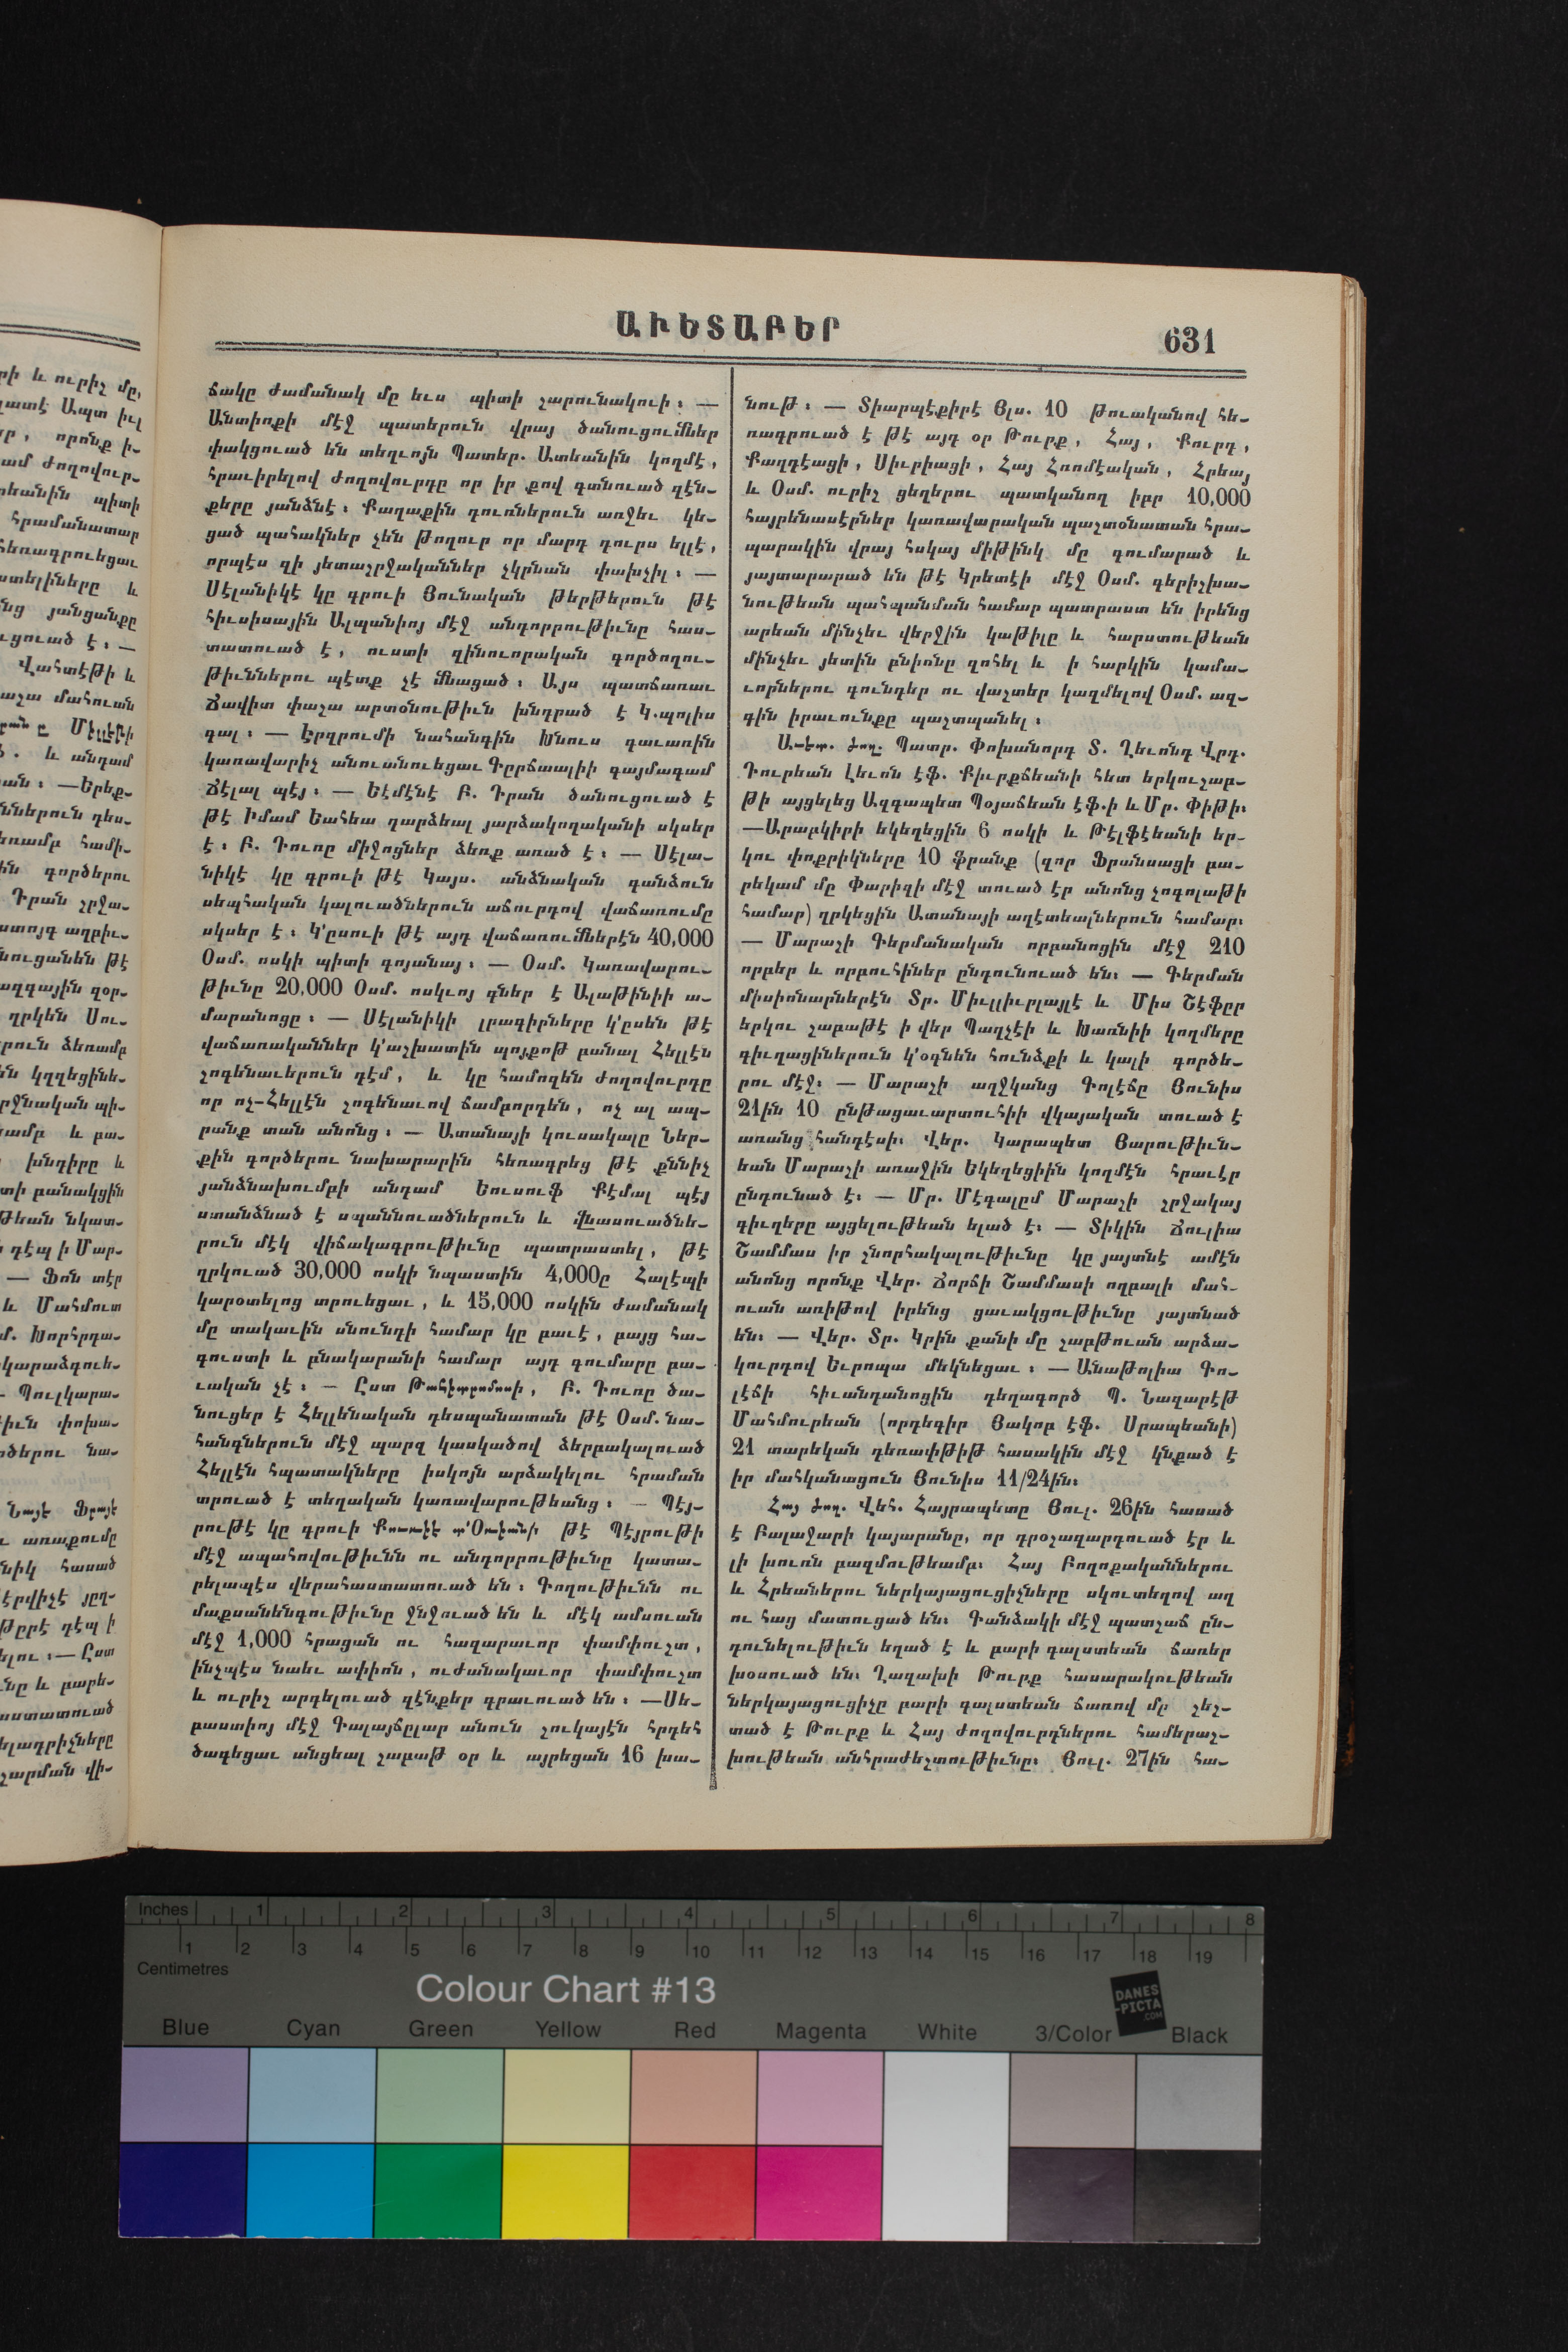 ԱՒԵՏԱԲԵՐ
631
ճակը ժամանակ մը եւս պիտի շարունակուի։ —
Անտիոքի մէջ պատերուն վրայ ծանուցումներ
փակցուած են տեղւոյն Պատեր. Ատեանին կողմէ,
հրաւիրելով ժողովուրդը որ իր քով գտնուած զէն–
քերը յանձնէ։ Քաղաքին դռոներուն առջեւ կե–
ցած պահակներ չեն թողուր որ մարդ դուրս ելլէ,
որպէս զի յետաշրջականներ չկրնան փախչիլ։ —
Սէլանիկէ կը գրուի Յունական թերթերուն թէ
հիւսիսային Ալպանիոյ մէջ անդորրութիւնը հաս–
տատուած է, ուստի զինուորական գործողու–
թիւններու պէտք չէ մնացած։ Այս պատճառաւ
Ճավիտ փաշա արտօնութիւն խնդրած է Կ.պոլիս
գալ։ — Էրզրումի նահանգին Խնուս գաւառին
կառավարիչ անուանուեցաւ Գըրճաալիի գայմագամ
Ճէլալ պէյ։ — Եէմէնէ Բ. Դրան ծանուցուած է
թէ Իմամ Եահեա դարձեալ յարձակողականի սկսեր
է։ Բ. Դուռը միջոցներ ձեռք առած է։ — Սէլա–
նիկէ կը գրուի թէ Կայս. անձնական գանձուն
սեպհական կալուածներուն աճուրդով վաճառումը
սկսեր է։ Կ՚ըսուի թէ այդ վաճառումներէն 40,000
Օսմ. ոսկի պիտի գոյանայ։ — Օսմ. Կառավարու–
թիւնը 20,000 Օսմ. ոսկւոյ գներ է Ալաթինիի ա–
մարանոցը։ — Սէլանիկի լրագիրները կ՚ըսեն թէ
վաճառականներ կ՚աշխատին պոյքոթ բանալ Հելլէն
շոգենաւերուն դէմ, և կը համոզեն ժողովուրդը
որ ոչ–Հելլէն շոգենաւով ճամբորդեն, ոչ ալ ապ–
րանք տան անոնց։ — Ատանայի կուսակալը Ներ–
քին գործերու նախարարին հեռագրեց թէ քննիչ
յանձնախումբի անդամ Եուսուֆ Քէմալ պէյ
ստանձնած է սպաննուածներուն և վնասուածնե–
րուն մէկ վիճակագրութիւնը պատրաստել, թէ
ղրկուած 30,000 ոսկի նպաստին 4,000ը Հալէպի
կարօտելոց տրուեցաւ, և 15,000 ոսկին ժամանակ
մը տակաւին սնունդի համար կը բաւէ, բայց հա–
գուստի և բնակարանի համար այդ գումարը բա–
ւական չէ։ — Ըստ Թահիտրոմոսի, Բ. Դուռը ծա–
նուցեր է Հելլենական դեսպանատան թէ Օսմ. նա–
հանգներուն մէջ պարզ կասկածով ձերբակալուած
Հելլէն հպատակները իսկոյն արձակելու հրաման
տրուած է տեղական կառավարութեանց։ — Պէյ–
րութէ կը գրուի Քուռռիէ տ՚Օռիանի թէ Պէյրութի
մէջ ապահովութիւնն ու անդորրութիւնը կատա–
րելապէս վերահաստատուած են։ Գողութիւնն ու
մաքսանենգութիւնը ջնջուած են և մէկ ամսուան
մէջ 1,000 հրացան ու հազարաւոր փամփուշտ,
ինչպէս նաեւ ափիոն, ուժանակաւոր փամփուշտ
և ուրիշ արգելուած զէնքեր գրաւուած են։ —Սե–
բաստիոյ մէջ Գալայճըլար անուն շուկայէն հրդեհ
ծագեցաւ անցեալ շաբաթ օր և այրեցան 16 խա–
նութ։ — Տիարպէքիրէ Յլս. 10 թուականով հե–
ռագրուած է թէ այդ օր Թուրք, Հայ, Քուրդ,
Քաղդէացի, Սիւրիացի, Հայ Հռոմէական, Հրեայ
և Օսմ. ուրիշ ցեղերու պատկանող իբր 10,000
հայրենասէրներ կառավարական պաշտօնատան հրա–
պարակին վրայ հսկայ միթինկ մը գումարած և
յայտարարած են թէ Կրետէի մէջ Օսմ. գերիշխա–
նութեան պահպանման համար պատրաստ են իրենց
արեան մինչեւ վերջին կաթիլը և հարստութեան
մինչեւ յետին բնիոնը զոհել և ի հարկին կամա–
ւորներու գունդեր ու վաշտեր կազմելով Օսմ. ազ–
գին իրաւունքը պաշտպանել։
Աւետ. ժող. Պատր. Փոխանորդ Տ. Ղեւոնդ Վրդ.
Դուրեան Լեւոն էֆ. Քիւրքճեանի հետ երկուշաբ–
թի այցելեց Ազգապետ Պօյաճեան էֆ.ի և Մր. Փիթի։
—Արաբկիրի եկեղեցին 6 ոսկի և Թէլֆէեանի եր–
կու փոքրիկները 10 ֆրանք (զոր Ֆրանսացի բա–
րեկամ մը Փարիզի մէջ տուած էր անոնց շոգոլաթի
համար) ղրկեցին Ատանայի աղէտեալներուն համար։
— Մարաշի Գերմանական որբանոցին մէջ 210
որբեր և որբուհիներ ընդունուած են։ — Գերման
միսիոնարներէն Տր. Միւլլիւրլայլէ և Միս Շէֆըր
երկու շաբաթէ ի վեր Պաղչէի և Խառնիի կողմերը
գիւղացիներուն կ՚օգնեն հունձքի և կալի գործե–
րու մէջ։ — Մարաշի աղջկանց Գոլէճը Յունիս
21ին 10 ընթացաւարտուհիի վկայական տուած է
առանց հանդէսի։ Վեր. Կարապետ Յարութիւն–
եան Մարաշի առաջին Եկեղեցիին կողմէն հրաւէր
ընդունած է։ — Մր. Մէգալըմ Մարաշի շրջակայ
գիւղերը այցելութեան ելած է։ — Տիկին Ճուլիա
Շամմաս իր շնորհակալութիւնը կը յայտնէ ամէն
անոնց որոնք Վեր. Ճորճի Շամմասի ողբալի մահ–
ուան առիթով իրենց ցաւակցութիւնը յայտնած
են։ — Վեր. Տր. Կրին քանի մը շաբթուան արձա–
կուրդով Եւրոպա մեկնեցաւ։ — Անաթոլիա Գո–
լէճի հիւանդանոցին դեղագործ Պ. Նազարէթ
Մահմուրեան (որդեգիր Յակոբ էֆ. Սրապեանի)
21 տարեկան դեռափթիթ հասակին մէջ կնքած է
իր մահկանացուն Յունիս 11/24ին։
Հայ ժող. Վեհ. Հայրապետը Յուլ. 26ին հասած
է Բալաջարի կայարանը, որ դրօշազարդուած էր և
լի խուռն բազմութեամբ։ Հայ Բողոքականներու
և Հրեաներու ներկայացուցիչները սկուտեղով աղ
ու հաց մատուցած են։ Գանձակի մէջ պատշաճ ըն–
դունելութիւն եղած է և բարի գալստեան ճառեր
խօսուած են։ Ղազախի Թուրք հասարակութեան
ներկայացուցիչը բարի գալստեան ճառով մը շեշ–
տած է Թուրք և Հայ ժողովուրդներու համերաշ–
խութեան անհրաժեշտութիւնը։ Յուլ. 27ին հա–
Inches 1 2 3 4 5 6 7 8
1 2 3 4 5 6 7 8 9 10 11 12 13 14 15 16 17 18 19
Centimetres
Colour Chart #13
DANES
-PICTA
.COM
Blue Cyan Green Yellow Red Magenta White 3/Color Black